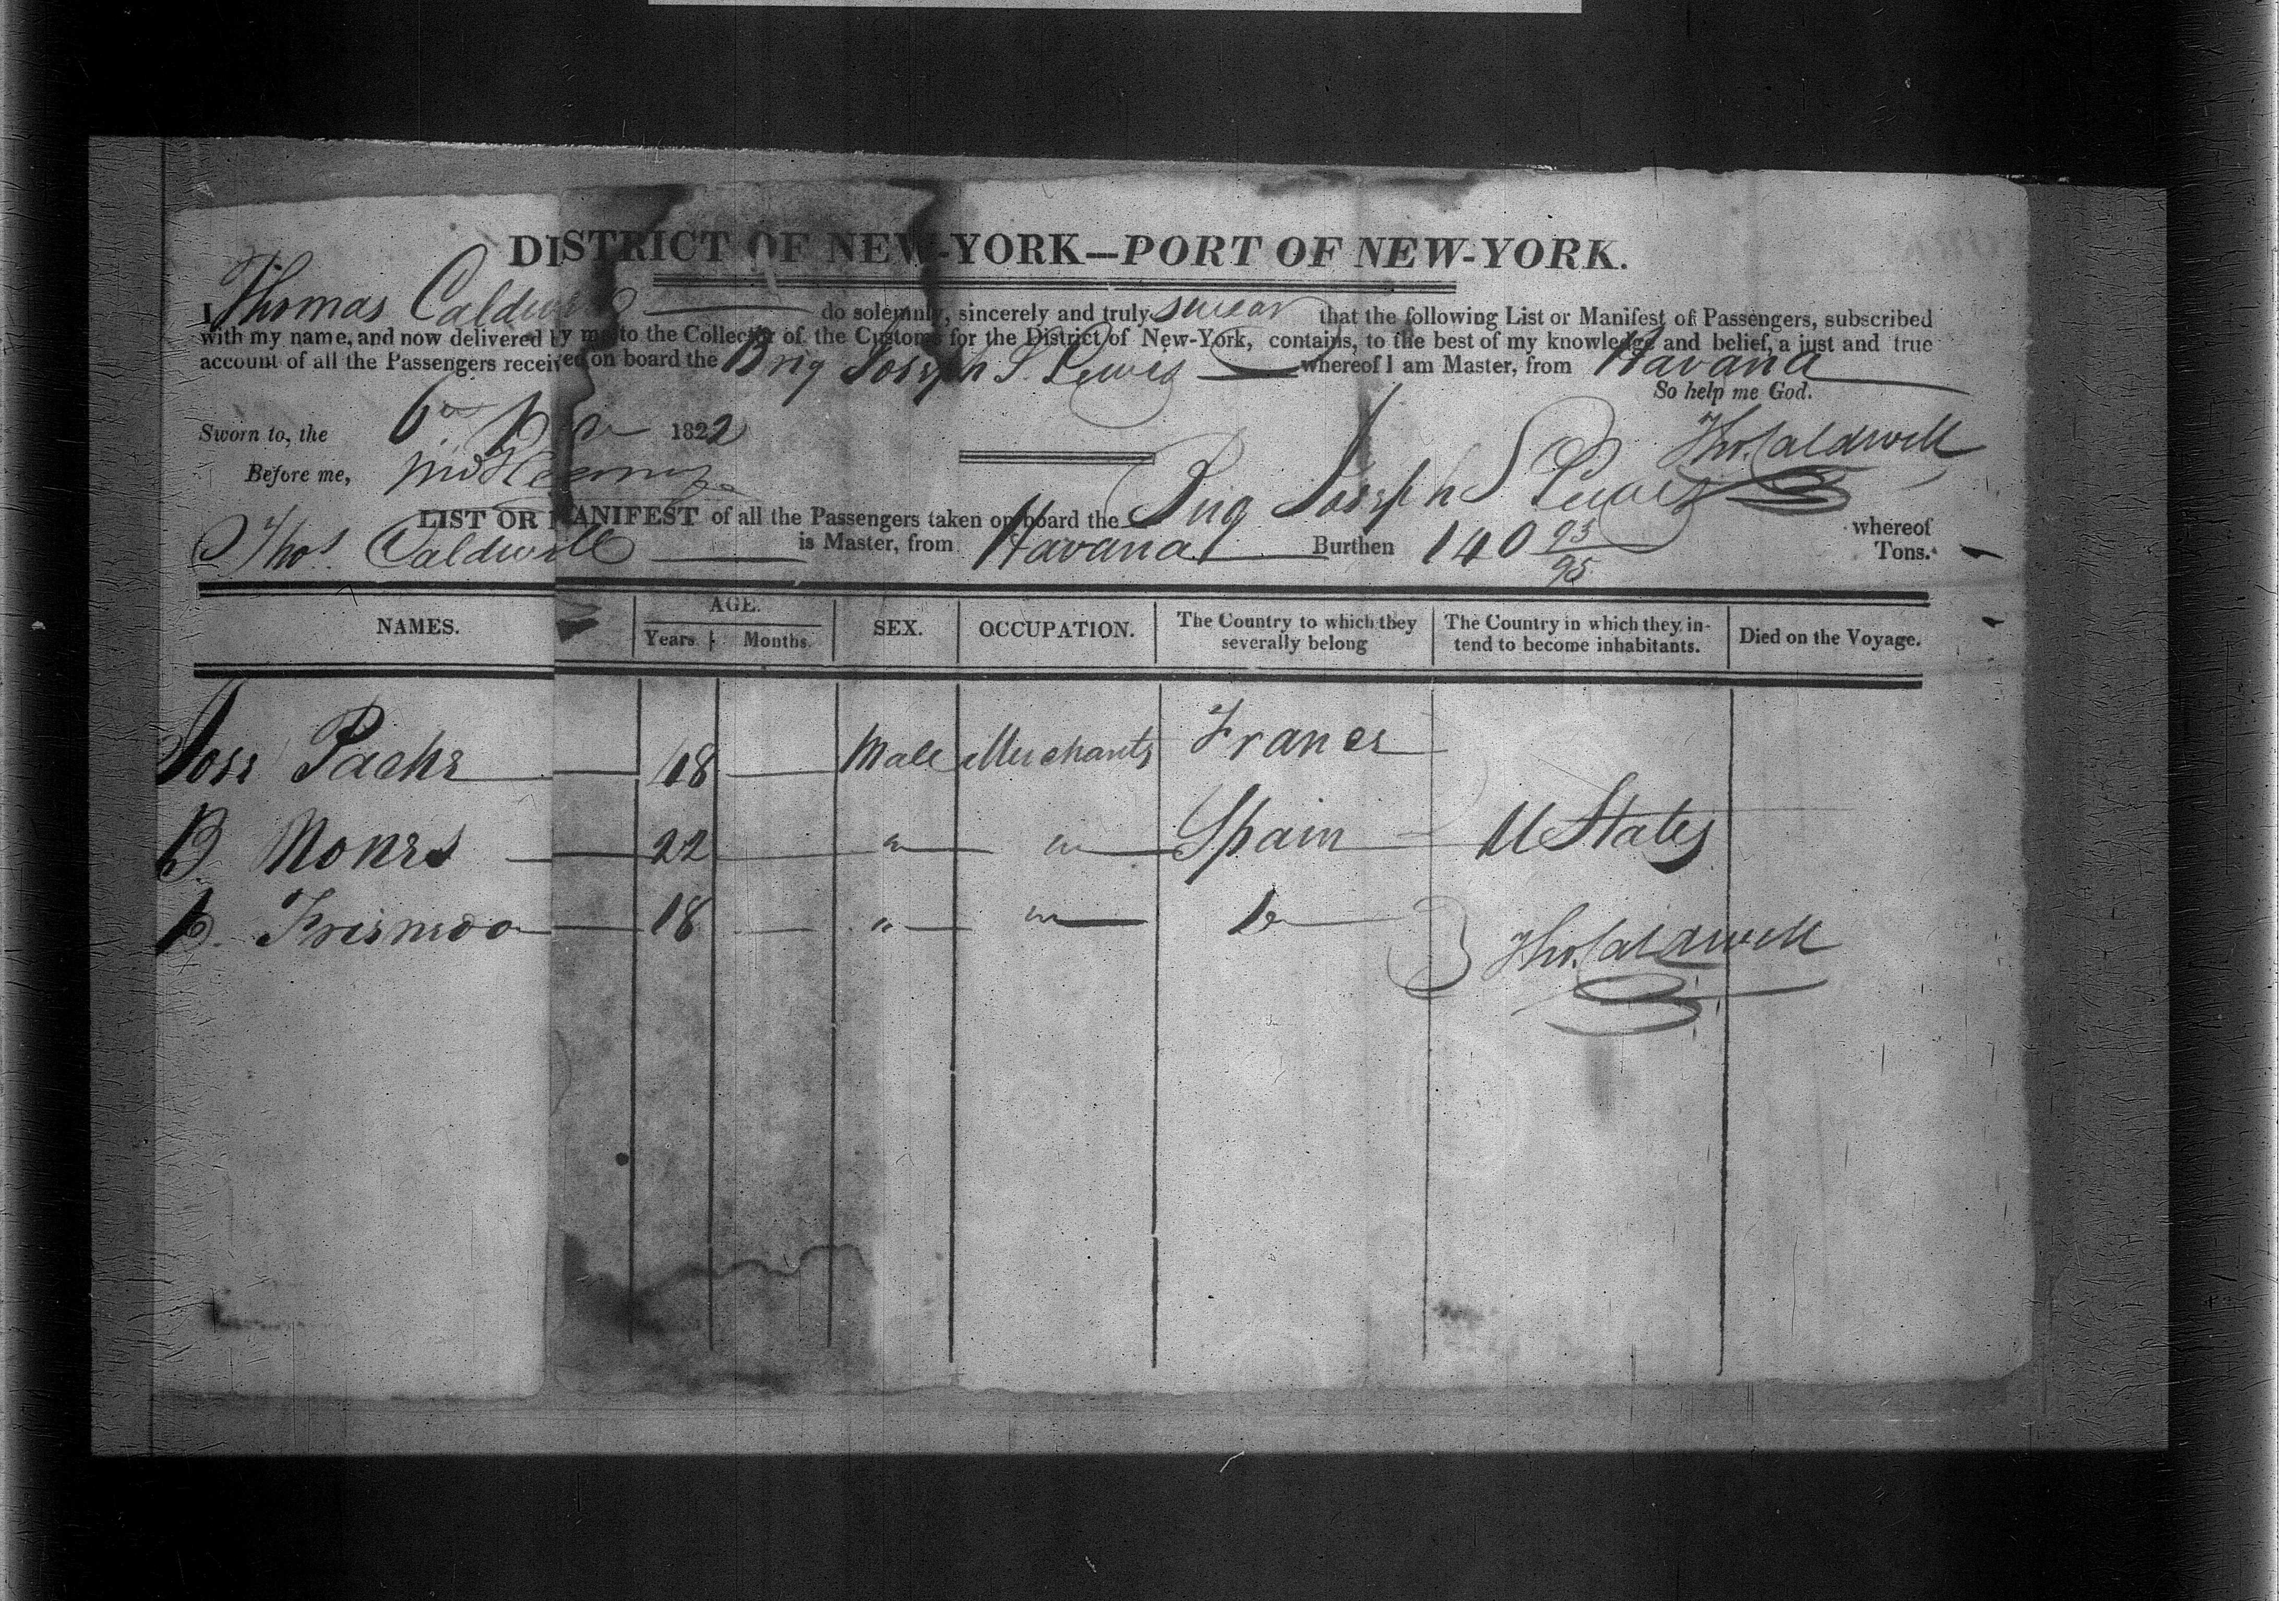 DISTRICT OF NEW-YORK—PORT OF NEW-YORK.
I Thomas Caldwell do solemnly, sincerely and truly swear that the following List or Manifest of Passengers, subscribed
with my name, and now delivered by me to the Collector of the Customs for the District of New-York, contains, to the best of my knowledge and belief, a just and true
account of all the Passengers received on board the Brig Joseph S. Lewis whereof I am Master, from Havana
So help me God.
Sworn to, the 6 1822
Thos. Caldwell
Before me,
LIST OR MANIFEST of all the Passengers taken on board the Brig Joseph S Lewis whereof
Thos. Caldwell is Master, from Havana Burthen 140 93/95 Tons.
NAMES. AGE. Years. Months. SEX. OCCUPATION. The Country to which they severally belong The Country in which they intend to become inhabitants. Died on the Voyage.
Jose 18 Male Merchants France
B. 22 " " Spain U States
18 " "
Tho. Caldwell